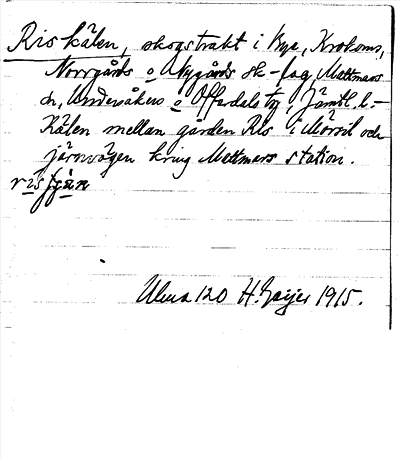 Riskälen, skogstrakt i Bye, Krokoms,
Norrgårds o Nygårds sk-lag, Mattmars
sn, Undersåkers o Offerdals tg, Jämtl. l.-
Kälen mellan gården Ris i Mörsil och
järnvägen kring Mattmars station.
Ulma 120 H. Geijer 1915.